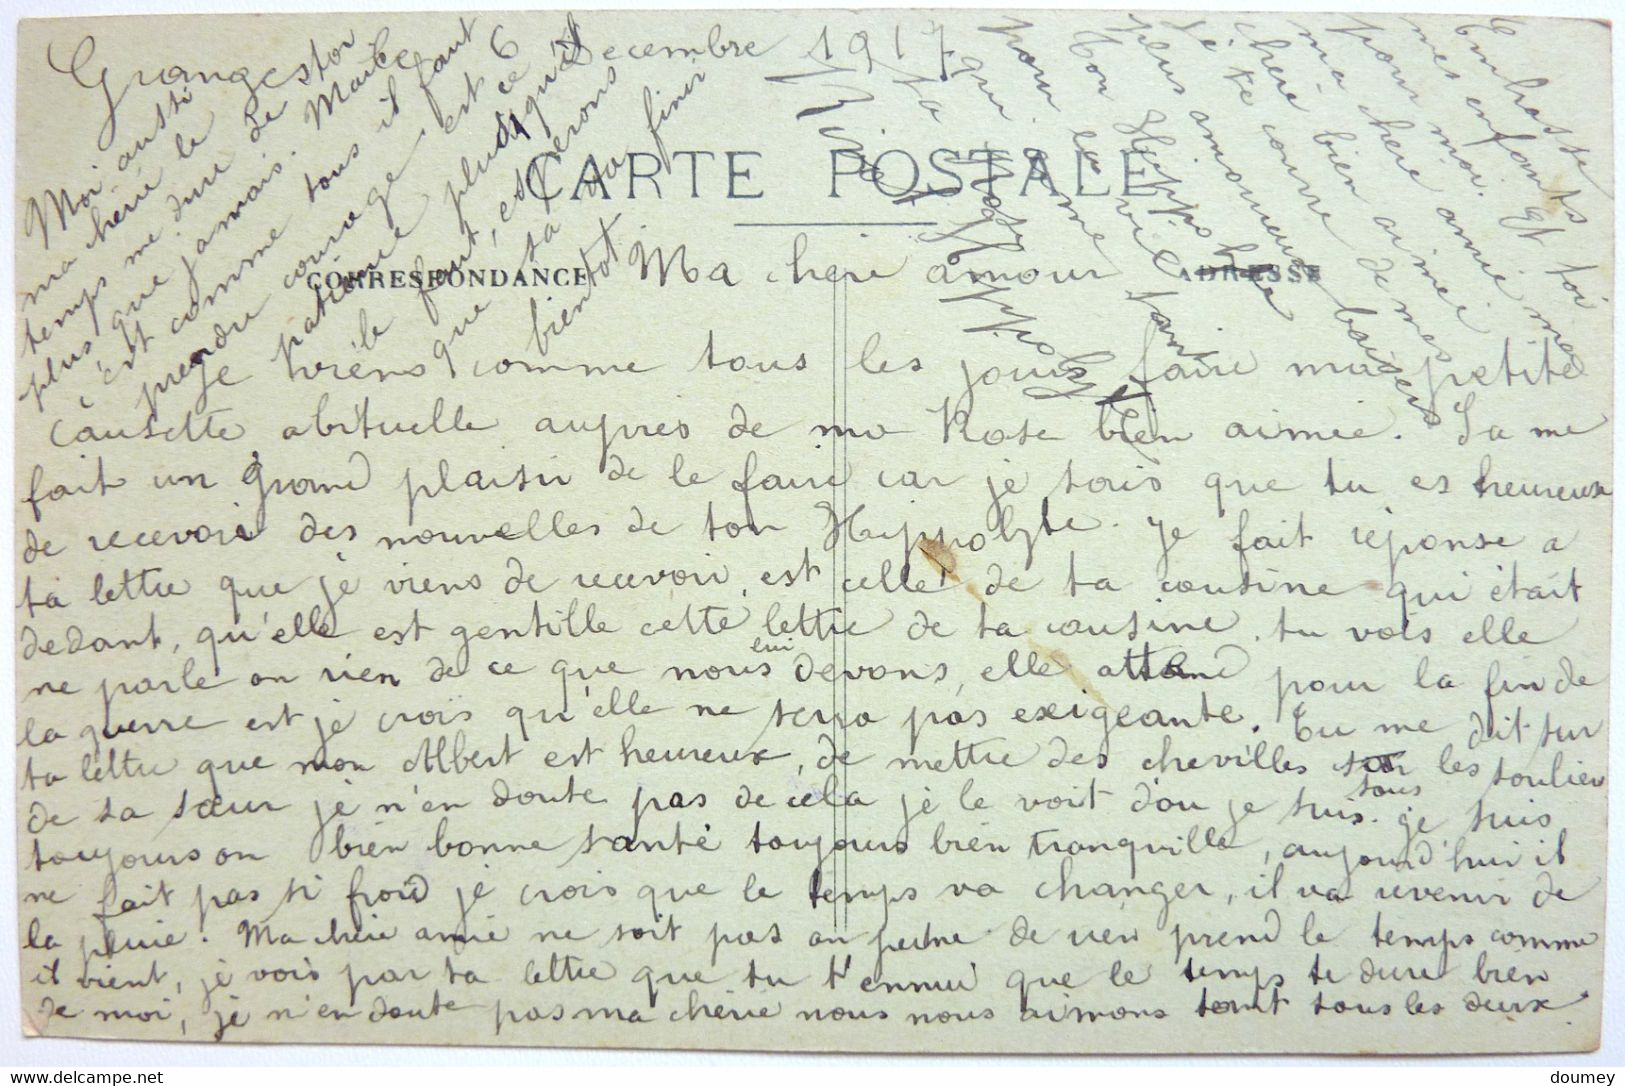 Grangestor 6 Decembre 1917
CARTE POSTALE
CORRESPONDANCE
ADRESSE
Ma cheri amour
Je viens comme tous les jours faire ma petite
causette abituelle aupres de ma Rose bien aimée. Sa me
fait un grand plaisir de le faire car je sais que tu es heureux
de recevoir des nouvelles de ton Hippolyte. Je fait réponse a
ta lettre que je viens de recevoir, est celle de ta cousine qui était
dedant, qu'elle est gentille cette lettre de ta cousine. tu vois elle
ne parle on rien de ce que nous lui devons, elle attend pour la fin de
la guerre est je crois qu'elle ne sera pas exigeante. Tu me dit sur
ta lettre que mon Albert est heureux, de mettre des chevilles sous les soulier
de sa sœur je n'en doute pas de cela je le voit d'ou je suis. Je suis
toujours on bien bonne santé toujours bien tranquille, aujourd'hui il
ne fait pas si froid je crois que le temps va changer, il va revenir de
la pluie. Ma chère amie ne soit pas on peine de rien prend le temps comme
il vient, je vois par ta lettre que tu t'ennui que le temps te dure bien
de moi, je n'en doute pas ma chérie nous nous aimons tant tous les deux.
Moi aussi
ma chérie le
temps me dure de
plus que jamais. Mais
c'est comme tous il faut
prendre courage est ce
patience plus qu'il
le faut, esperons
que sa va finir
bientot
Embrasse
mes enfants
pour moi. Et toi
ma chère amie ma
chère bien aimée
je te couvre de mes
plus amoureux baisers
Ton Hippolyte
pour la vie
qui t'aime
ta
Rose
Hippolyte
doumey